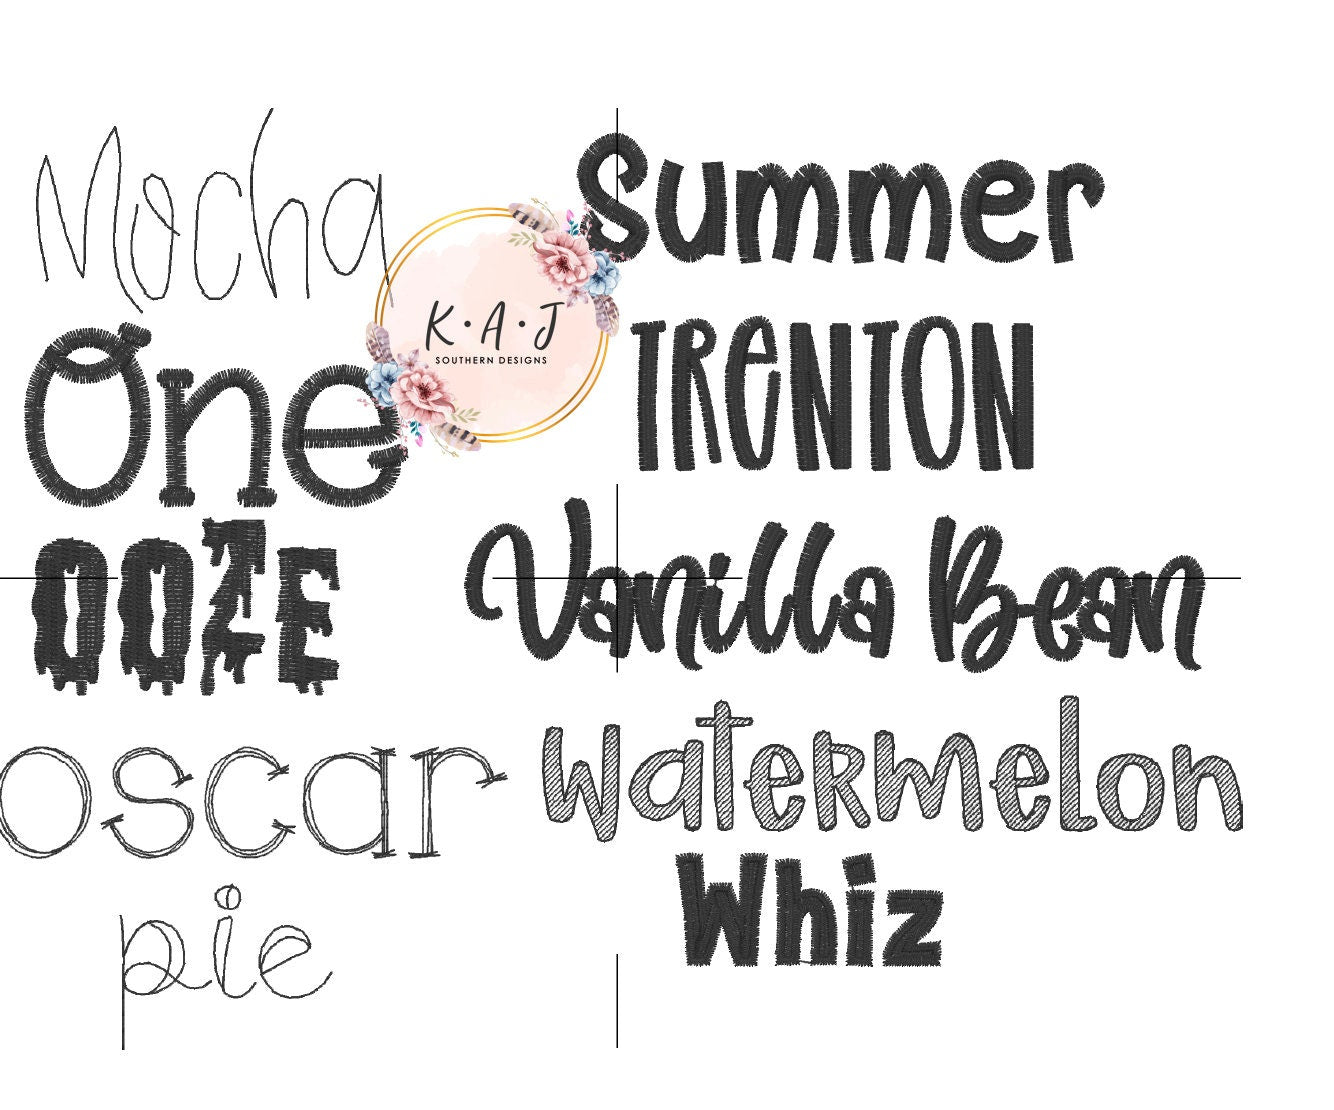 Mocha
Summer
K·A·J
SOUTHERN DESIGNS
One
TReNTON
OOZE
Vanilla Bean
oscar
watermelon
pie
Whiz